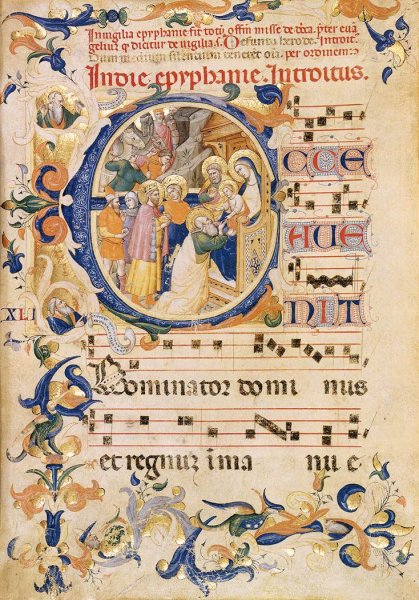 In uigilia epyphanie fit totũ offm̃ misse de dñica. pter euã
gelium qđ dicitur de uigilia .s. Defuncto herode. Introit.
Dum medium silentium tenerẽt oĩa. per ordinem.
In die epyphanie. Introitus.
E CCE
AUE
XLI NIT
Dominator domi nus
et regnuz i ma nu e